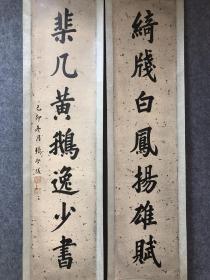 綺牋白鳳揚雄賦
棐几黃鵝逸少書
己卯冬月